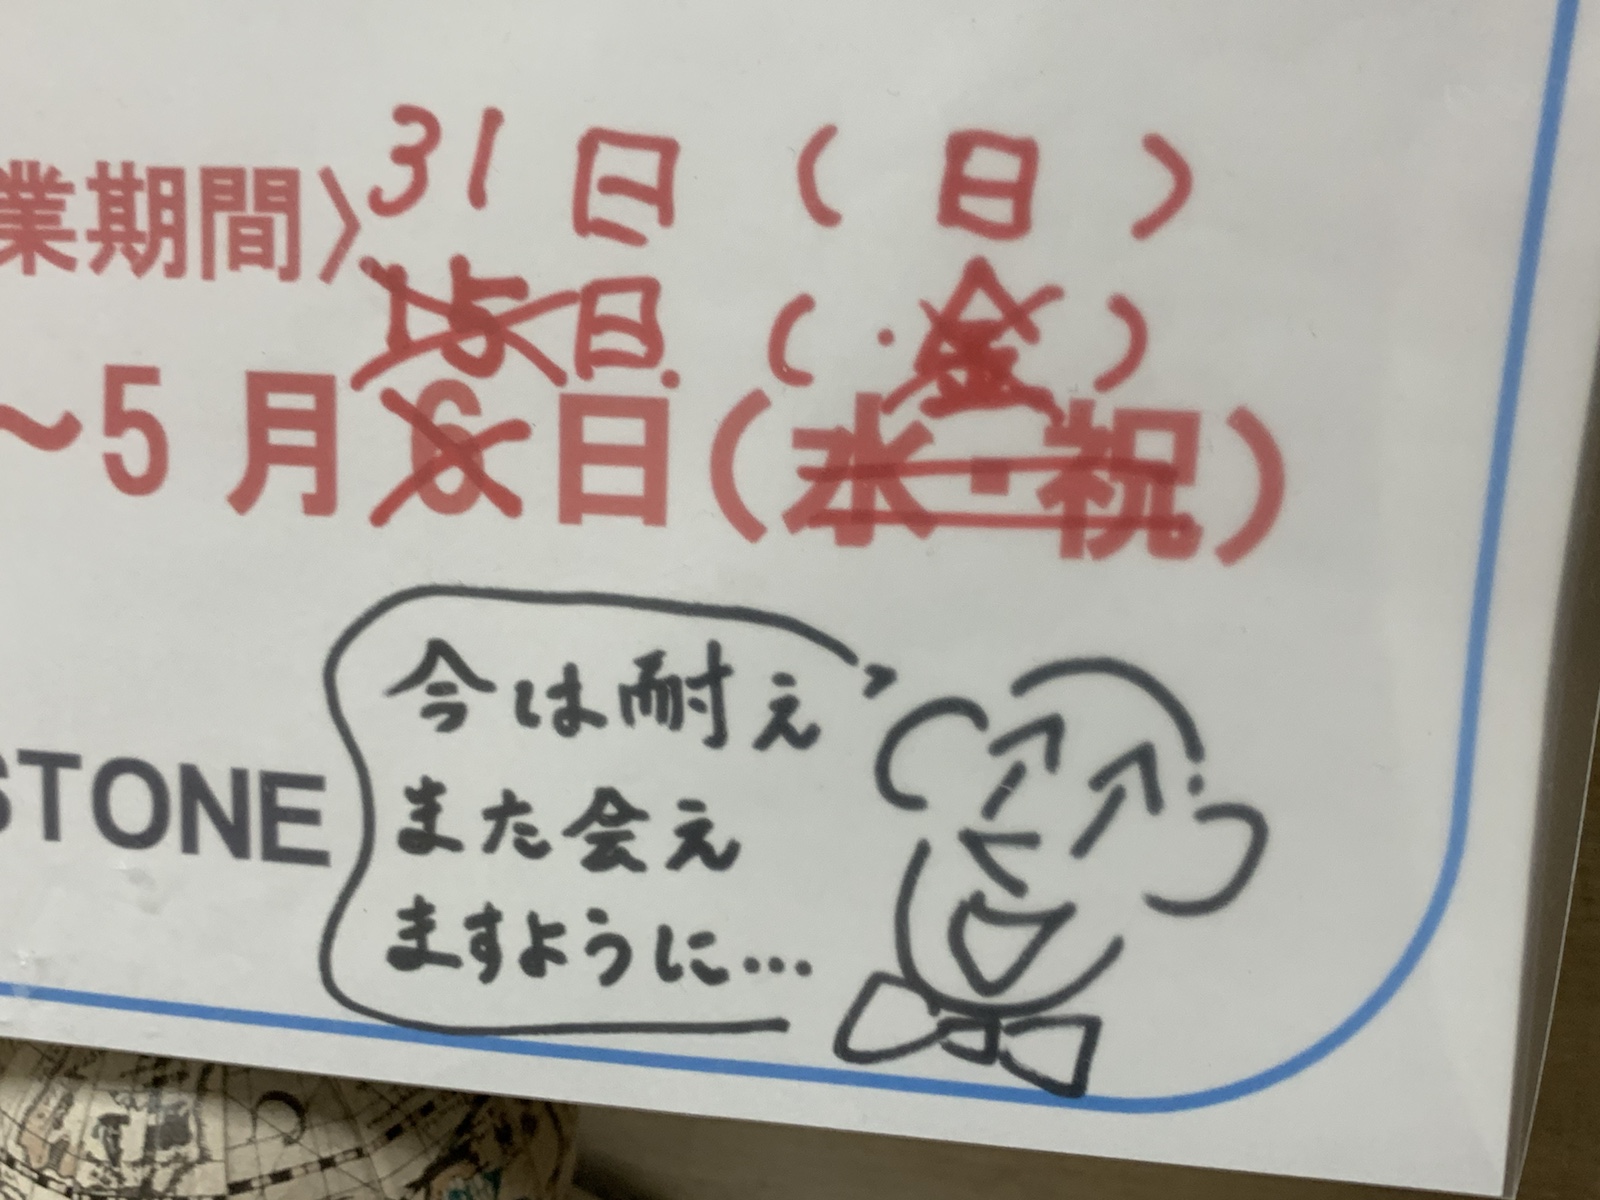 業期間〉
31日(日)
15日(金)
～5月6日(水・祝)
STONE
今は耐え
また会え
ますように…